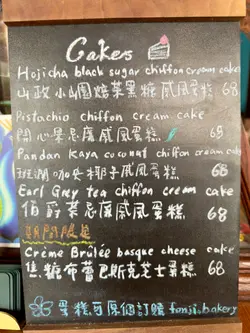 Cakes
Hojicha black sugar chiffon cream cake
山政小山園焙茶黑糖戚風蛋糕 68
Pistachio chiffon cream cake
開心果忌廉戚風蛋糕 68
Pandan Kaya coconut chiffon cream cake
班瀾咖央椰子戚風蛋糕 68
Earl Grey tea chiffon cream cake
伯爵茶忌廉戚風蛋糕 68
Crème Brûlée basque cheese cake
焦糖布蕾巴斯克芝士蛋糕 68
蛋糕可原個訂購